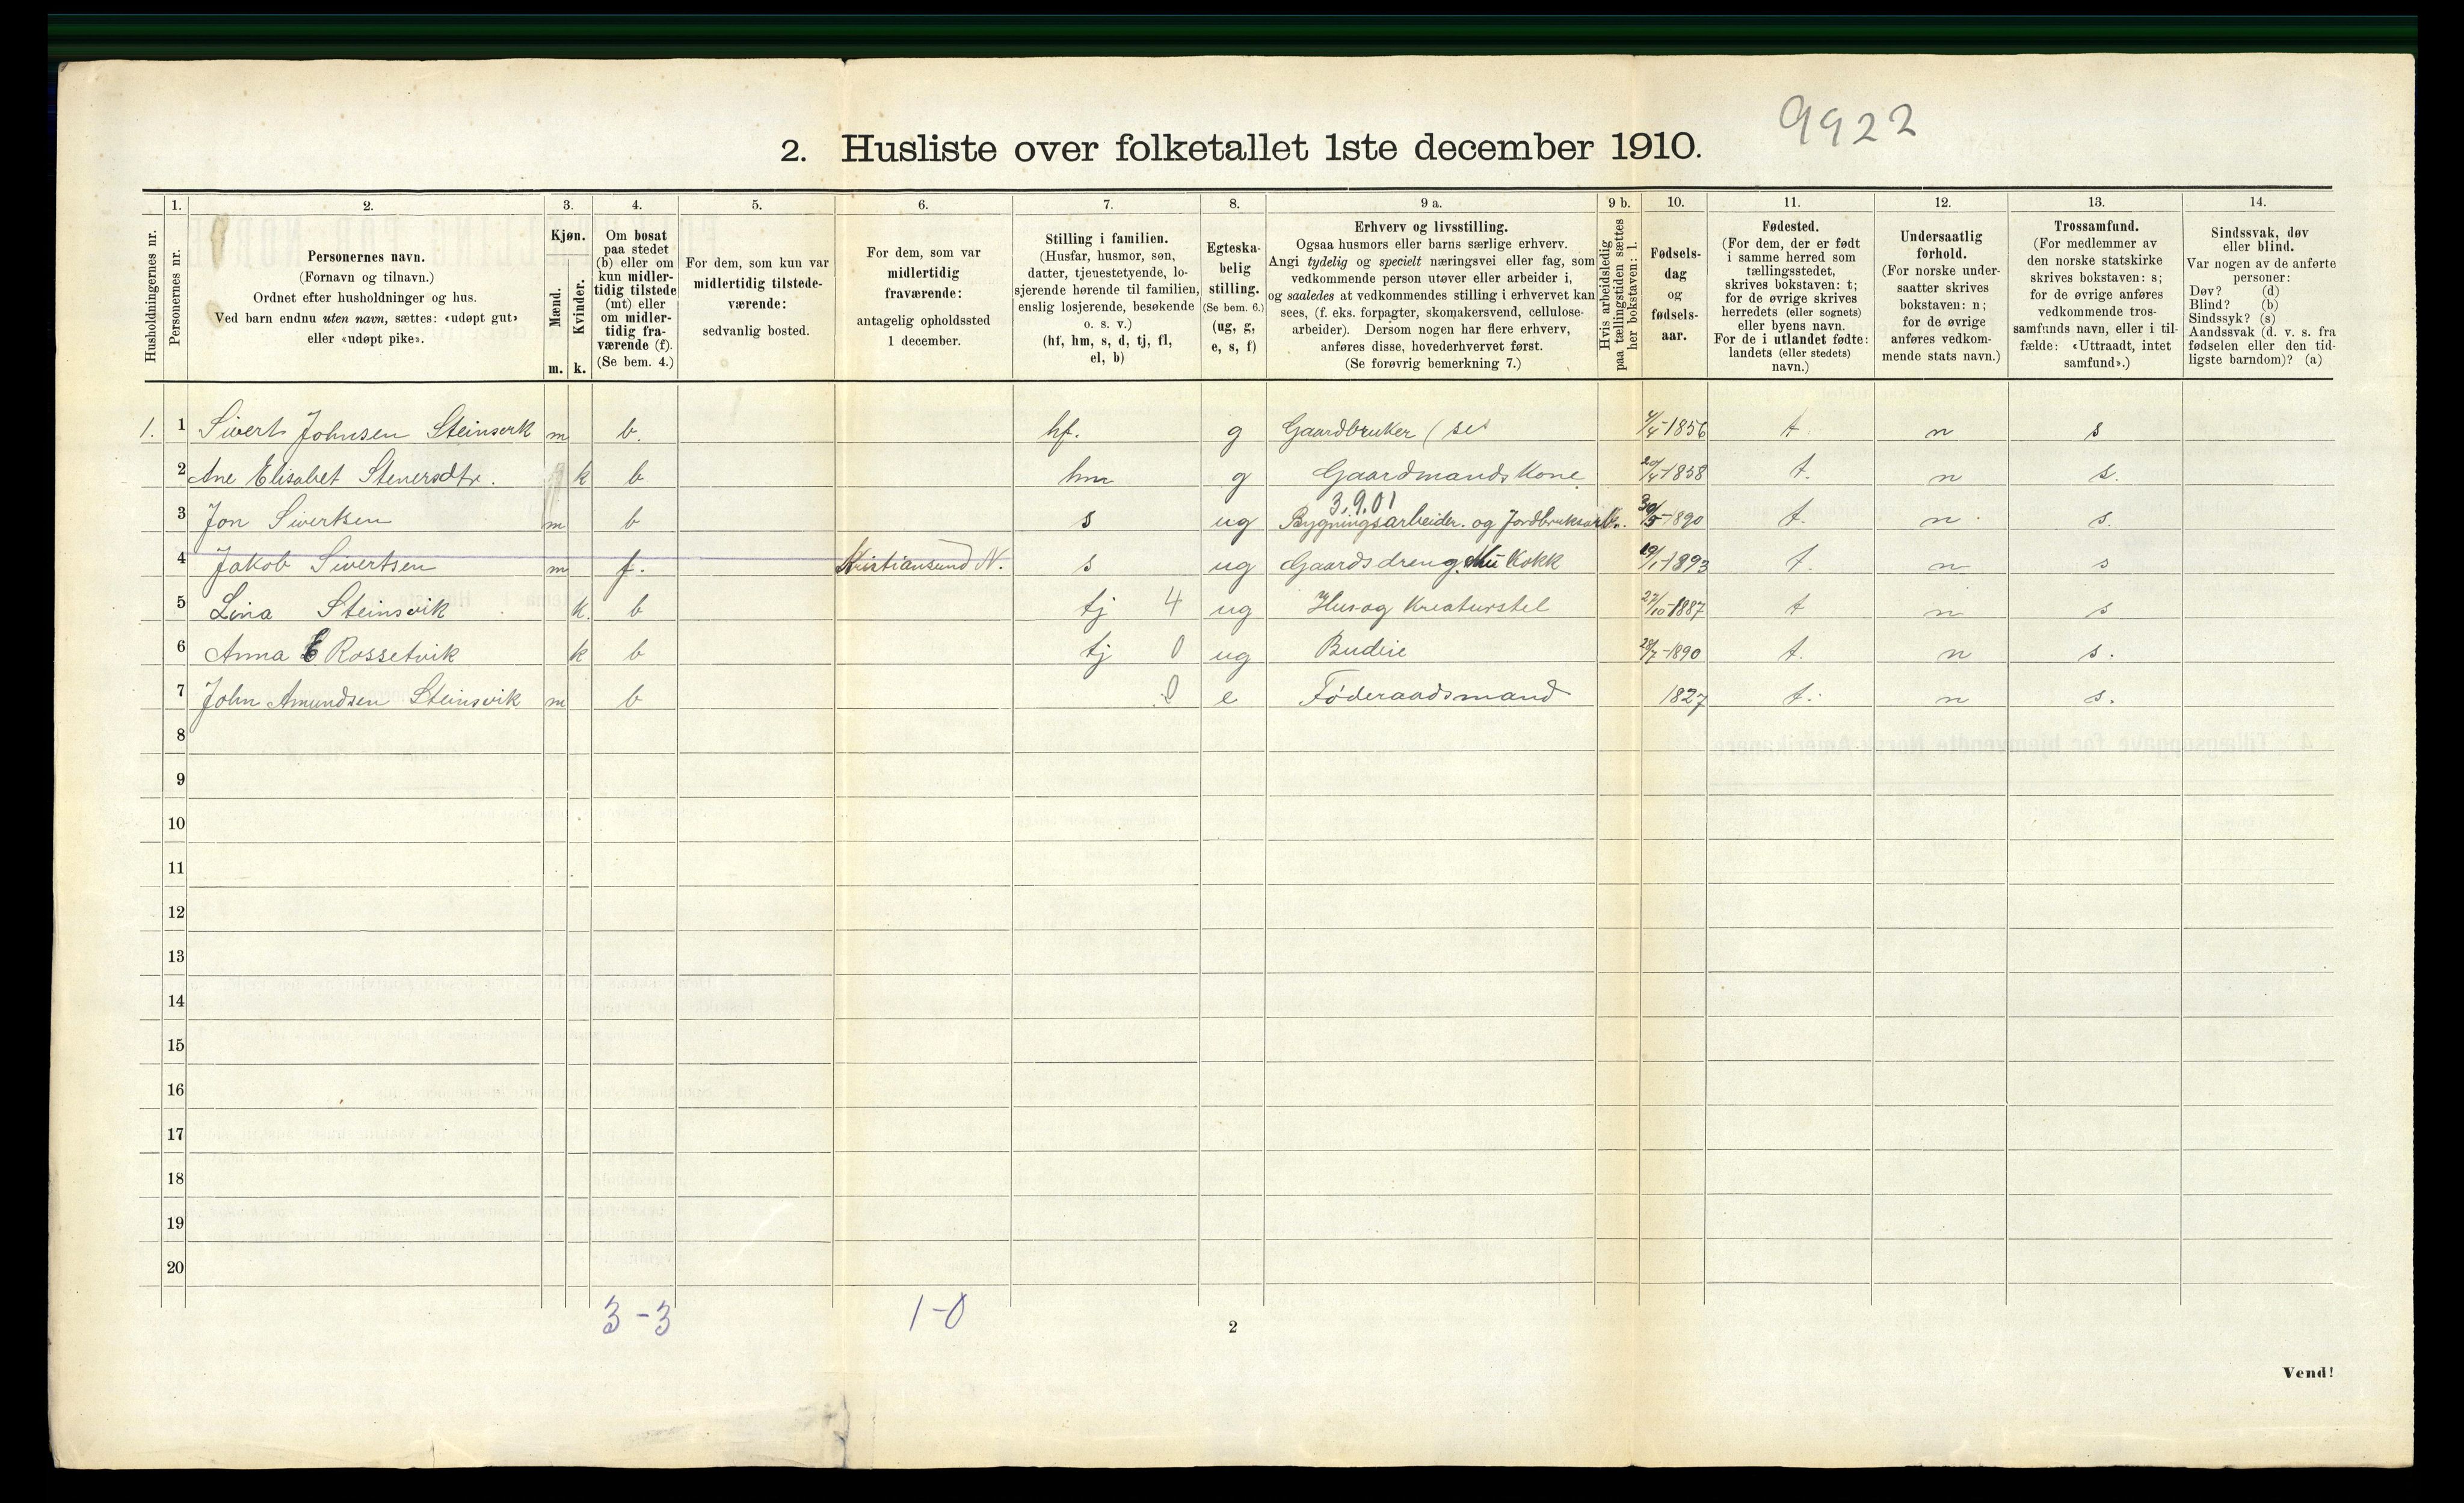 9922
2. Husliste over folketallet 1ste december 1910.
Husholdningernes nr.
1. Personernes nr.
2. Personernes navn. (Fornavn og tilnavn.) Ordnet efter husholdninger og hus. Ved barn endnu uten navn, sættes: «udøpt gut» eller «udøpt pike».
3. Kjøn. Mænd. m. Kvinder. k.
4. Om bosat paa stedet (b) eller om kun midlertidig tilstede (mt) eller om midlertidig fraværende (f). (Se bem. 4.)
5. For dem, som kun var midlertidig tilstedeværende: sedvanlig bosted.
6. For dem, som var midlertidig fraværende: antagelig opholdssted 1 december.
7. Stilling i familien. (Husfar, husmor, søn, datter, tjenestetyende, losjerende hørende til familien, enslig losjerende, besøkende o. s. v.) (hf, hm, s, d, tj, fl, el, b)
8. Egteskabelig stilling. (Se bem. 6.) (ug, g, e, s, f)
9 a. Erhverv og livsstilling. Ogsaa husmors eller barns særlige erhverv. Angi tydelig og specielt næringsvei eller fag, som vedkommende person utøver eller arbeider i, og saaledes at vedkommendes stilling i erhvervet kan sees, (f. eks. forpagter, skomakersvend, cellulosearbeider). Dersom nogen har flere erhverv, anføres disse, hovederhvervet først. (Se forøvrig bemerkning 7.)
9 b. Hvis arbeidsledig paa tællingstiden sættes her bokstaven: l.
10. Fødselsdag og fødselsaar.
11. Fødested. (For dem, der er født i samme herred som tællingsstedet, skrives bokstaven: t; for de øvrige skrives herredets (eller sognets) eller byens navn. For de i utlandet fødte: landets (eller stedets) navn.)
12. Undersaatlig forhold. (For norske undersaatter skrives bokstaven: n; for de øvrige anføres vedkommende stats navn.)
13. Trossamfund. (For medlemmer av den norske statskirke skrives bokstaven: s; for de øvrige anføres vedkommende trossamfunds navn, eller i tilfælde: «Uttraadt, intet samfund».)
14. Sindssvak, døv eller blind. Var nogen av de anførte personer: Døv? (d) Blind? (b) Sindssyk? (s) Aandssvak (d. v. s. fra fødselen eller den tidligste barndom)? (a)
1. 1 Sivert Johnsen Steinsvik m b. hf. g Gaardbruker (sel 4/5-1856 t. n s
2 Ane Elisabet Stenersdtr. k b hm g Gaardmands Kone 20/4-1858 t. n s.
3.9.01
3 Jon Sivertsen m b s ug Bygningsarbeider. og Jordbruksarb. 30/5-1890 t. n. s.
4 Jakob Sivertsen m f. Kristiansund N. s ug Gaardsdreng. Kokk 19/1-1893 t. n s
5 Lina Steinsvik k. b tj 4 ug Hus og Kreaturstel 27/10-1887 t n s
6 Anna E Rossetvik k b tj 0 ug Budeie 28/7-1890 t. n s.
7 John Amundsen Steinsvik m b 0 e Føderaadsmand 1827 t. n s.
8
9
10
11
12
13
14
15
16
17
18
19
20
3-3 1-0
2
Vend!